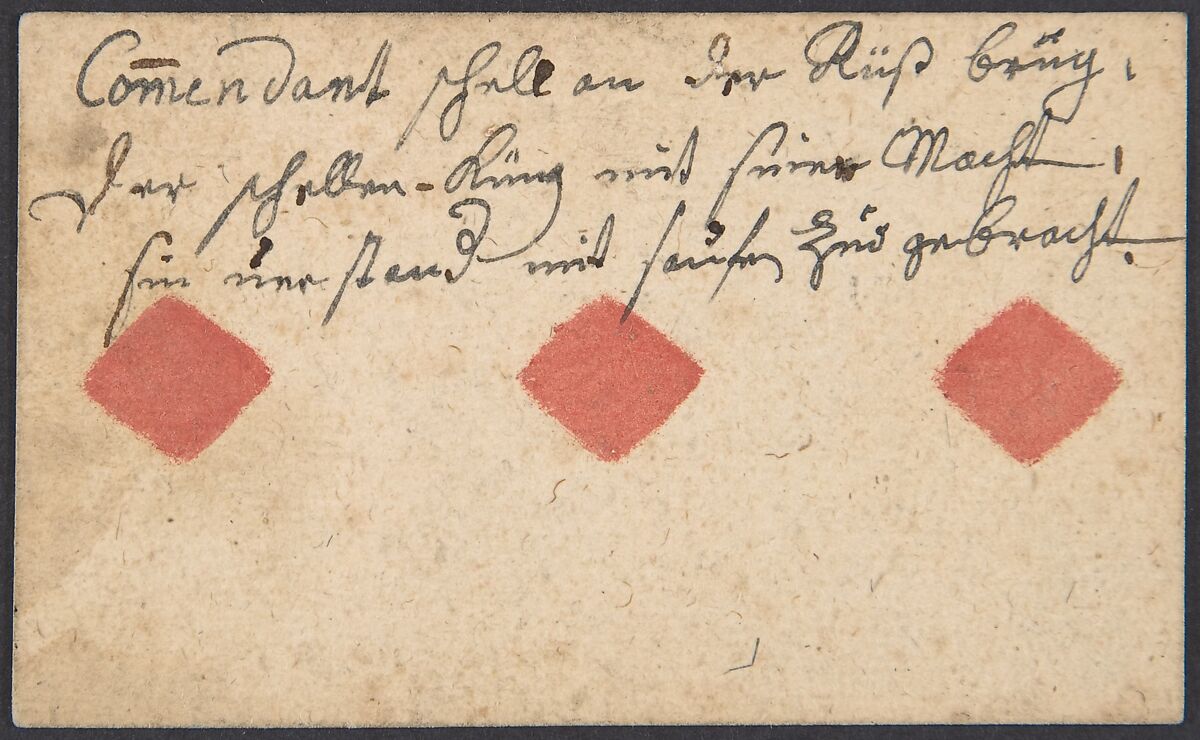 Com̅endant schell an der Rüß brüg,
der schellen-Küng mit seiner Macht,
sin verstand mit saufen Zuo gebracht.